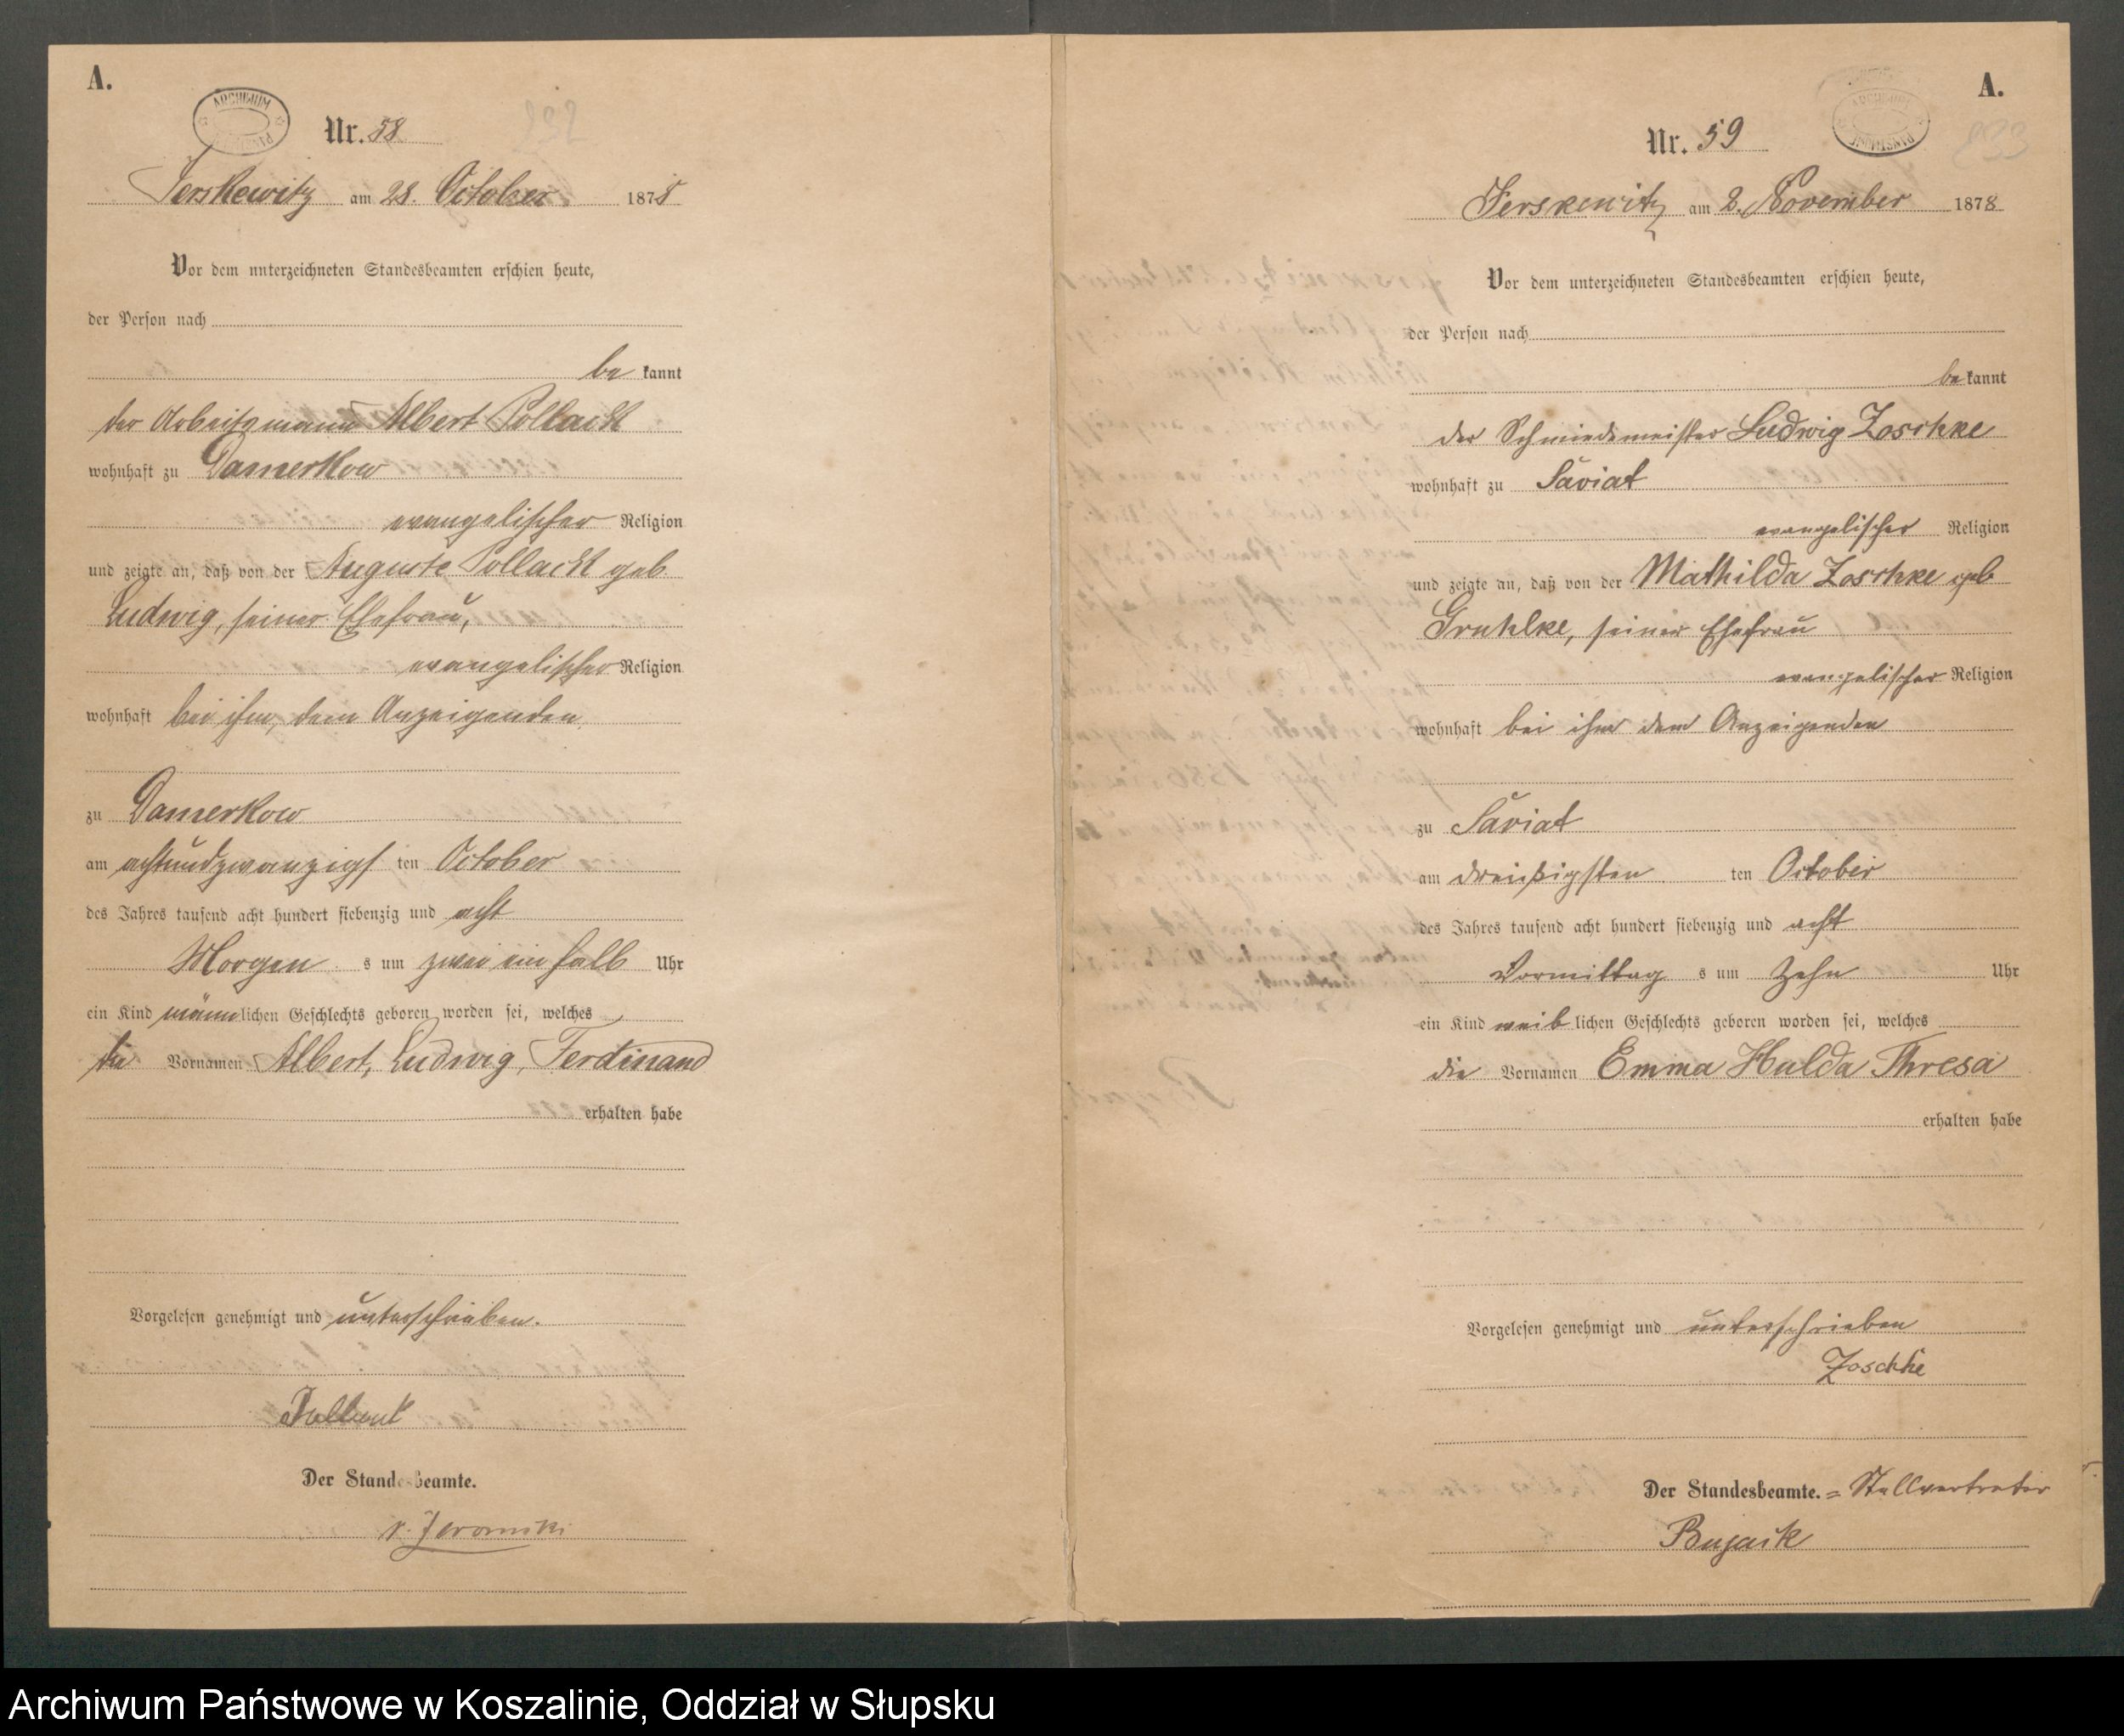 A.
ARCHIWUM
Nr. 58
232
Jerskewitz am 28. October 1878
Vor dem unterzeichneten Standesbeamten erschien heute,
der Person nach
be kannt
der Arbeitsmann Albert Pollack
wohnhaft zu Damerkow
evangelischer Religion
und zeigte an, daß von der Auguste Pollack geb
Ludwig, seiner Ehefrau,
evangelischer Religion
wohnhaft bei ihm, dem Anzeigenden
zu Damerkow
am achtundzwanzigs ten October
des Jahres tausend acht hundert siebenzig und acht
Morgen s um zwei ein halb Uhr
ein Kind männlichen Geschlechts geboren worden sei, welches
die Vornamen Albert, Ludwig, Ferdinand
erhalten habe
Vorgelesen genehmigt und unterschrieben.
Pollack
Der Standesbeamte.
v. Jeromski
A.
ARCHIWUM PAŃSTWOWE
Nr. 59
233
Jerskewitz am 2. November 1878
Vor dem unterzeichneten Standesbeamten erschien heute,
der Person nach
be kannt
der Schmiedemeister Ludwig Zoschke
wohnhaft zu Saviat
evangelischer Religion
und zeigte an, daß von der Mathilda Zoschke geb
Gruhlke, seiner Ehefrau
evangelischer Religion
wohnhaft bei ihm dem Anzeigenden
zu Saviat
am dreißigsten ten October
des Jahres tausend acht hundert siebenzig und acht
Vormittag s um Zehn Uhr
ein Kind weib lichen Geschlechts geboren worden sei, welches
die Vornamen Emma Hulda Thresa
erhalten habe
Vorgelesen genehmigt und unterschrieben
Zoschke
Der Standesbeamte. = Stellvertreter
Bujack
Archiwum Państwowe w Koszalinie, Oddział w Słupsku